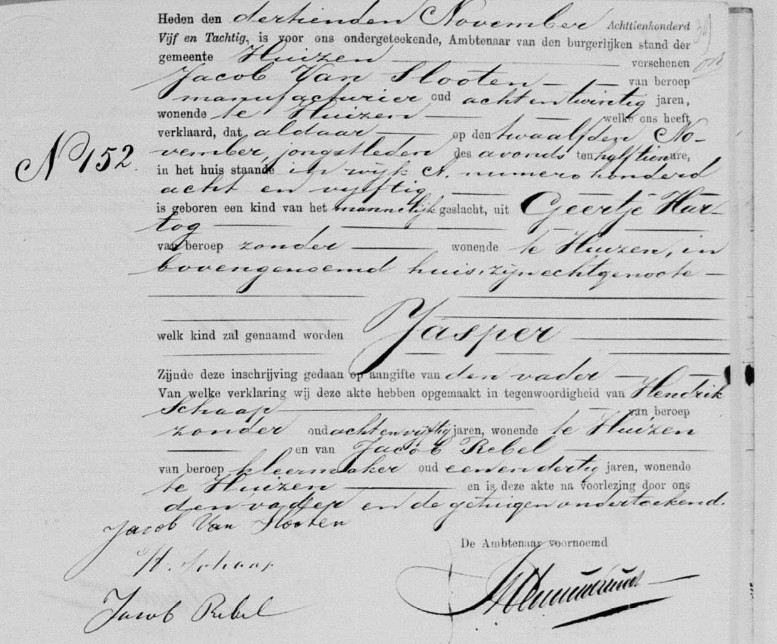 Heden den dertienden November Achttienhonderd
Vijf en Tachtig, is voor ons ondergeteekende, Ambtenaar van den burgerlijken stand der
gemeente Huizen verschenen
Jacob Van Slooten van beroep
manufacturier oud achtentwintig jaren,
wonende te Huizen welke ons heeft
verklaard, dat aldaar op den twaalfden No-
vember jongstleden des avonds ten half tien ure,
in het huis staande in wijk A. numero honderd
acht en vijftig
No 152.
is geboren een kind van het mannelijk geslacht, uit Geertje Har-
tog
van beroep zonder wonende te Huizen, in
bovengenoemd huis, zijn echtgenoote
welk kind zal genaamd worden Jasper
Zijnde deze inschrijving gedaan op aangifte van den vader
Van welke verklaring wij deze akte hebben opgemaakt in tegenwoordigheid van Hendrik
Schaap van beroep
zonder oud achtenvijftig jaren, wonende te Huizen
en van Jacob Rebel
van beroep kleermaker oud eenendertig jaren, wonende
te Huizen en is deze akte na voorlezing door ons
den vader en de getuigen onderteekend.
Jacob Van Slooten
De Ambtenaar voornoemd
H. Schaap
Jacob Rebel